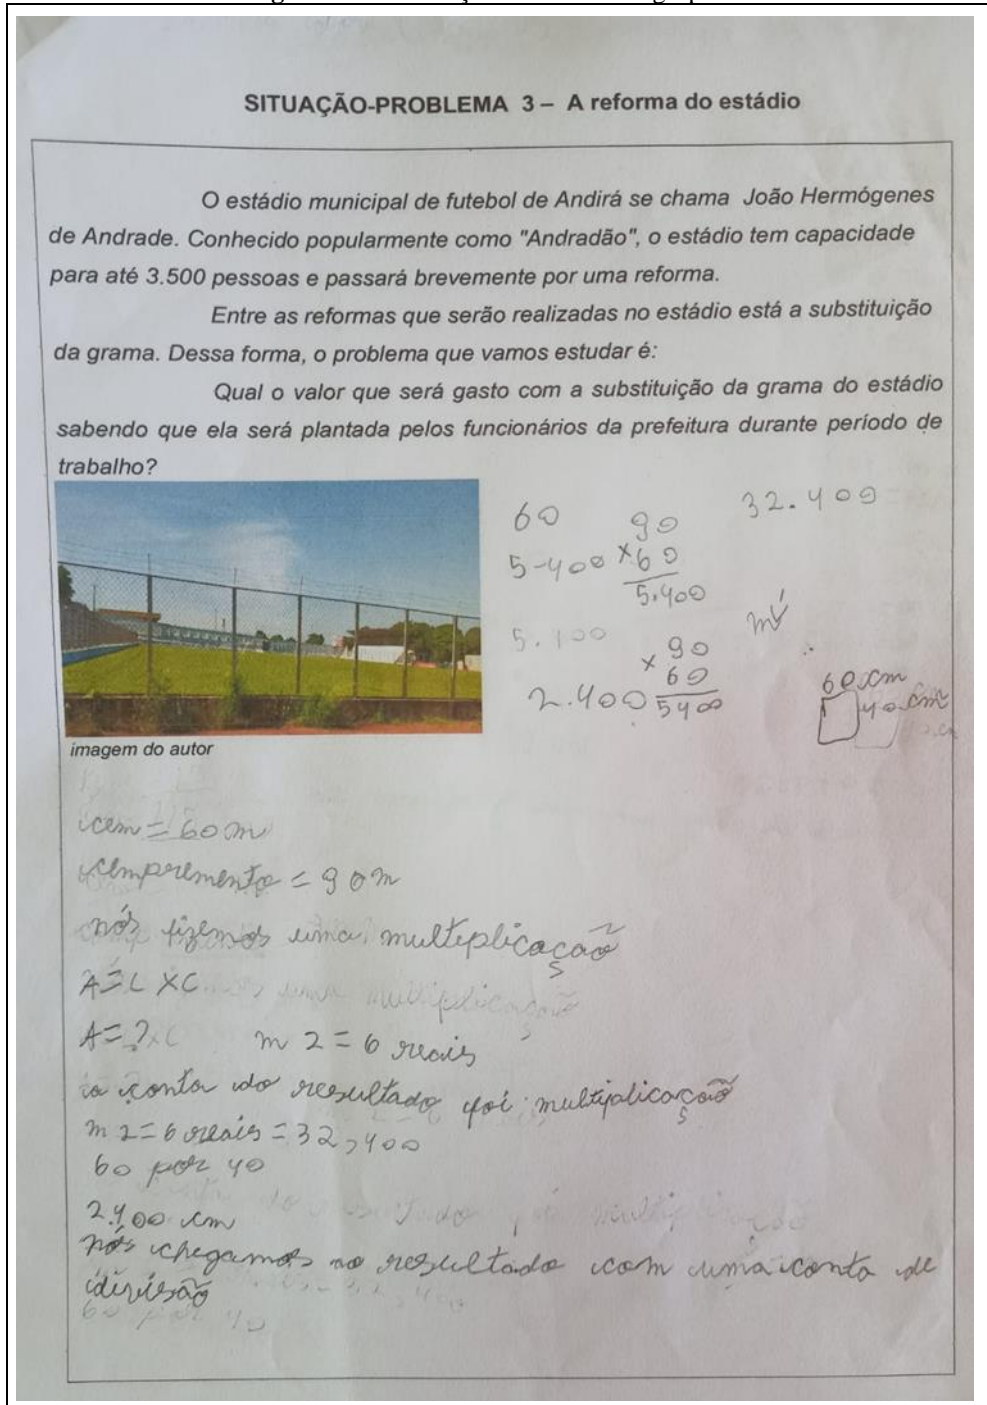 SITUAÇÃO-PROBLEMA 3 – A reforma do estádio
O estádio municipal de futebol de Andirá se chama João Hermógenes
de Andrade. Conhecido popularmente como "Andradão", o estádio tem capacidade
para até 3.500 pessoas e passará brevemente por uma reforma.
Entre as reformas que serão realizadas no estádio está a substituição
da grama. Dessa forma, o problema que vamos estudar é:
Qual o valor que será gasto com a substituição da grama do estádio
sabendo que ela será plantada pelos funcionários da prefeitura durante período de
trabalho?
60
5-400
90
×60
5.400
32.400
5.100
2.400
×90
60
5400
60 cm
40 cm
imagem do autor
= 60 m
= 90 m
nós fizemos uma multeplicação
A=L XC
A=?
m 2 = 6 reais
a conta do resultado foi multiplicação
m 2 = 6 reais = 32,400
60 por 40
2.400 cm
nós chegamos no resultado com uma conta de
divisão
60 por 40